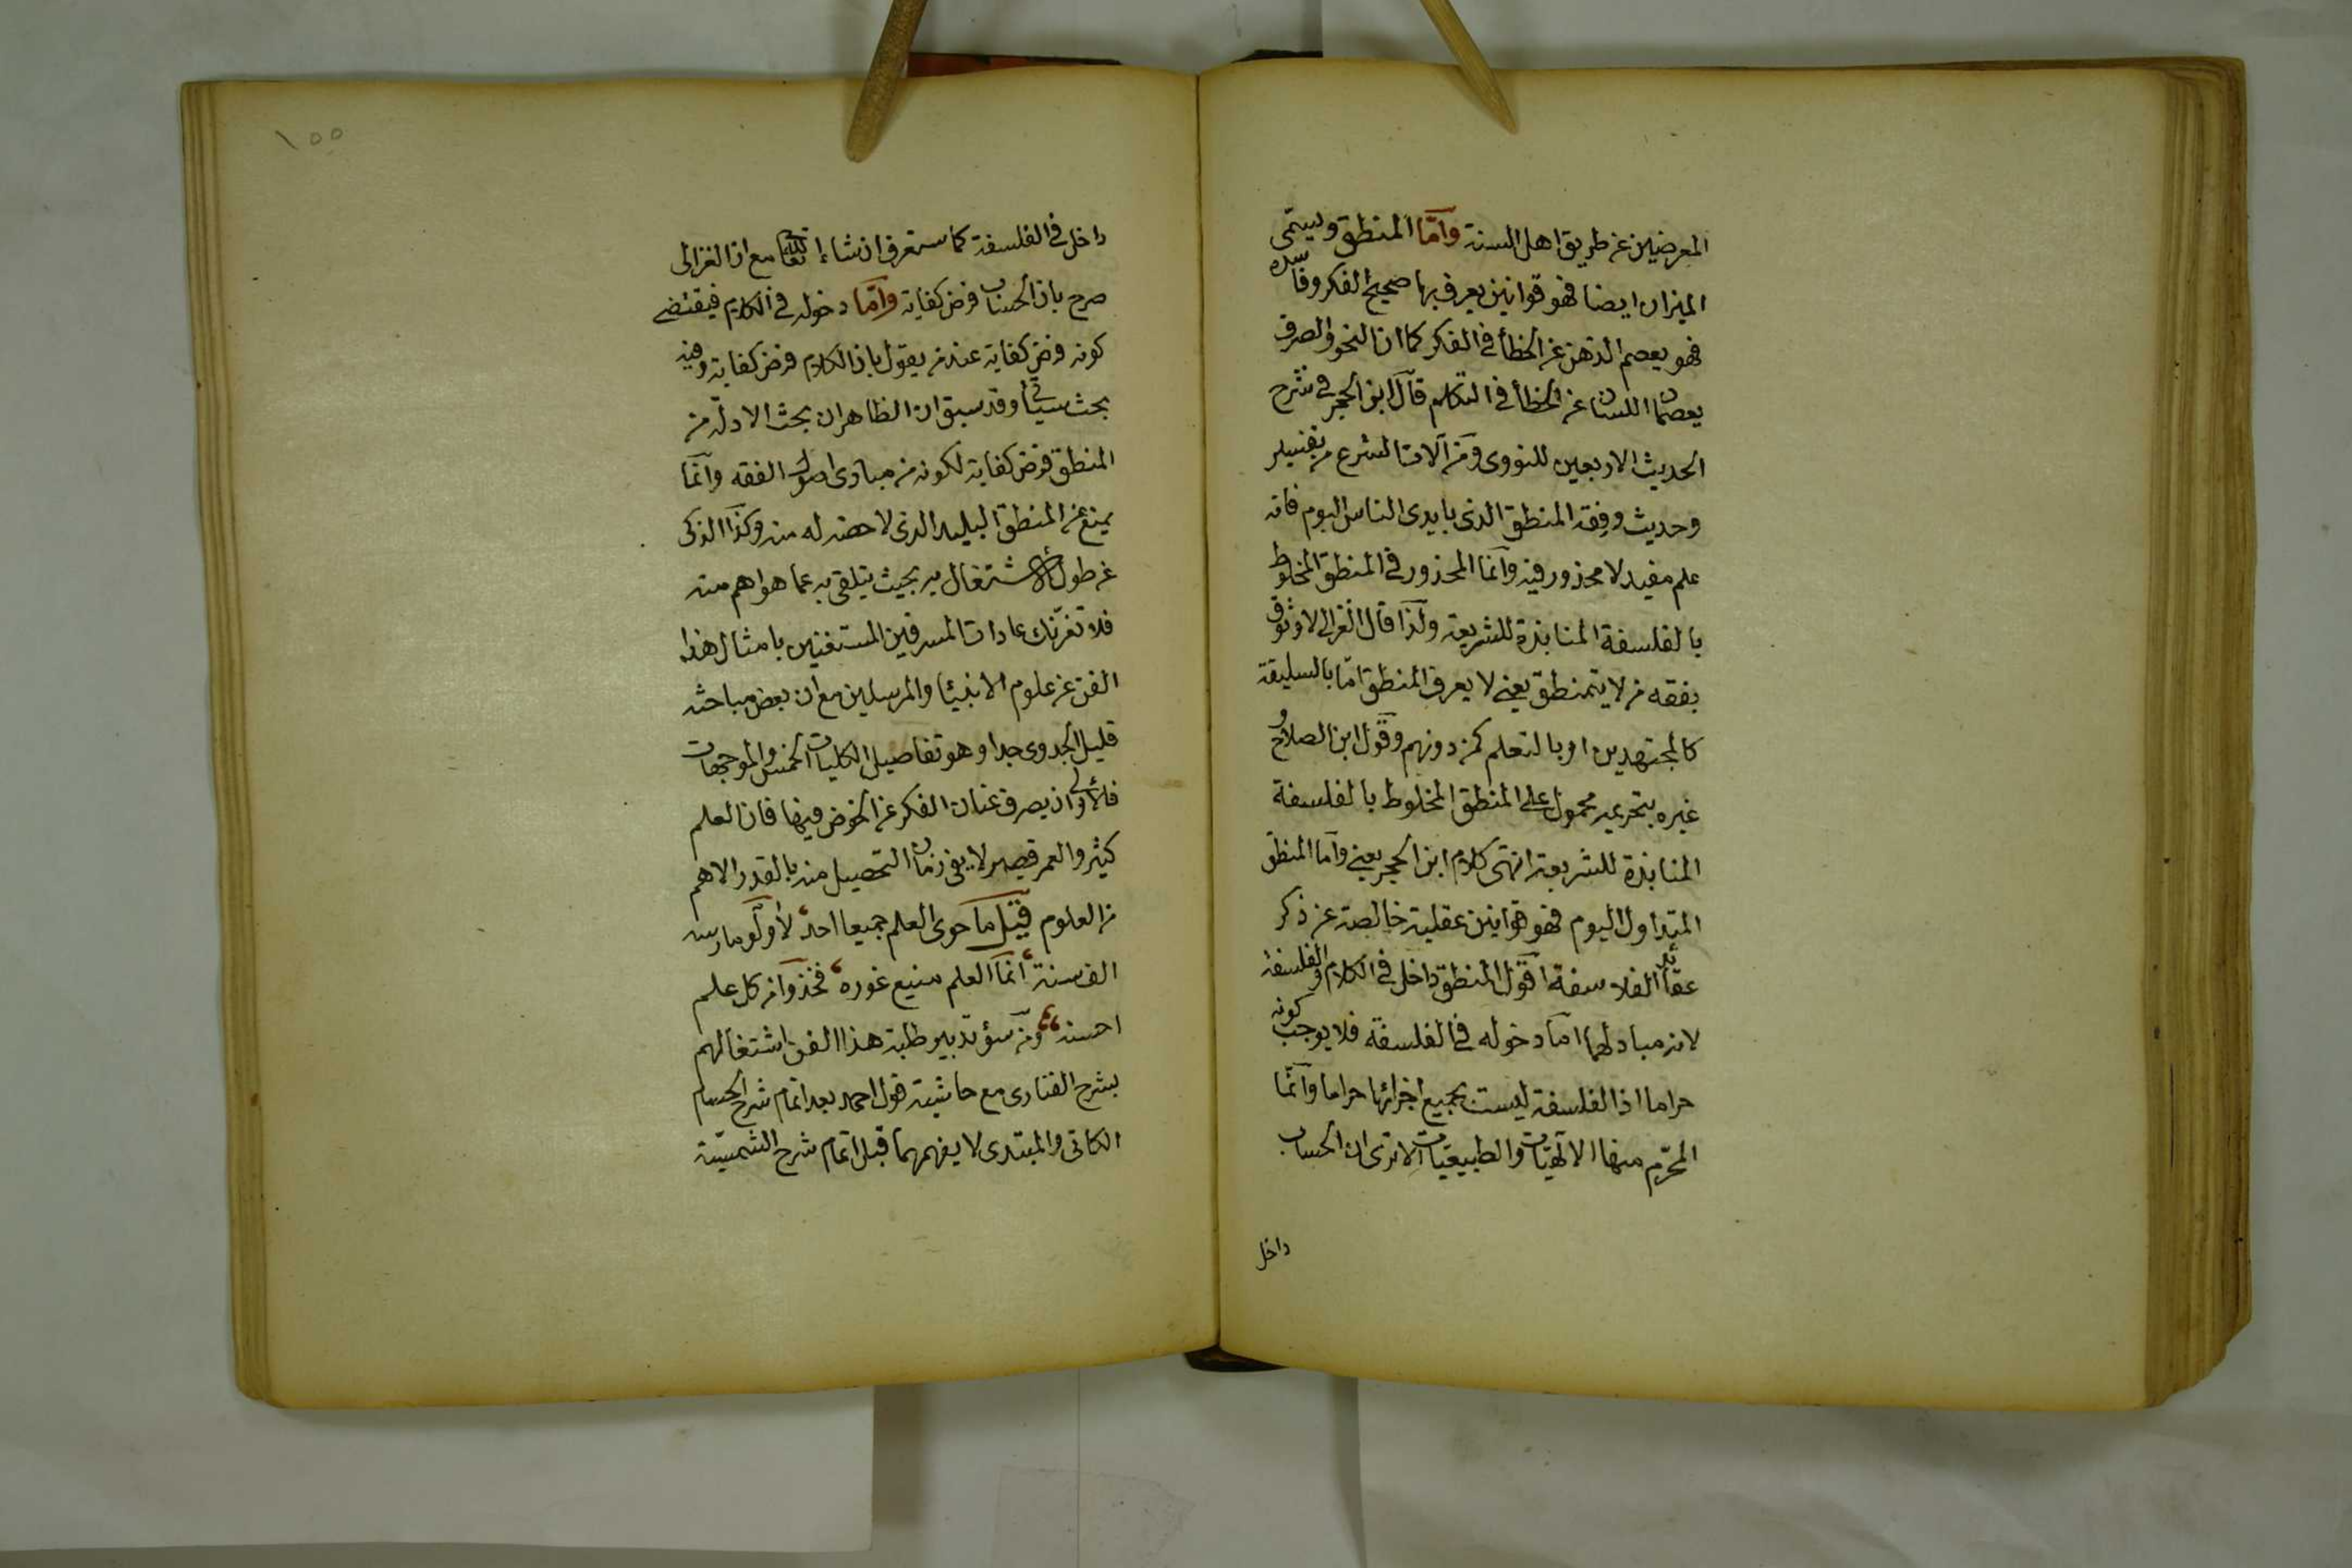 المعرضين عن طريق اهل السنة وآما المنطق ويسمى
الميزان ايضا فهو قوانين يعرف بها صحيح الفكر وفاسده
فهو يعصم الذهن عن الخطأ في الفكر كما ان النحو والصرف
يعصمان اللسان عن الخطأ في التكلم قال ابن الحجر في شرح
الحديث الاربعين للنووى ومن آلات الشرع من تفسير
وحديث وفقه المنطق الذى بايدى الناس اليوم فانه
علم مفيد لا محذور فيه وآنما المحذور في المنطق المخلوط
بالفلسفة المنابذة للشريعة ولذا قال الغزالى لا وثوق
بفقه من لا يتمنطق يعنى لا يعرف المنطق امّا بالسليقة
كالمجتهدين او بالتعلم كمن دونهم وقول ابن الصلاح و
غيره بتحريمه محمول على المنطق المخلوط بالفلسفة
المنابذة للشريعة انتهى كلام ابن الحجر يعنى وآما المنطق
المتداول اليوم فهو قوانين عقلية خالصة عن ذكر
عقائد الفلاسفة اقول المنطق داخل في الكلام والفلسفة
لانه مباد لهما اما دخوله في الفلسفة فلا يوجب كونه
حراما اذ الفلسفة ليست بجميع اجزائها حراما وآنما
المحرّم منها الالهيّات والطبيعيّات الا ترى ان الحساب
داخل
١٥٥
داخل في الفلسفة كما ستعرف ان شاء الله تعالى مع ان الغزالى
صرح بان الحساب فرض كفاية وآمّا دخوله في الكلام فيقتضى
كونه فرض كفاية عند من يقول بان الكلام فرض كفاية وفيه
بحث سيأتى وقد سبق ان الظاهر ان بحث الادلّة من
المنطق فرض كفاية لكونه من مبادى اصول الفقه وآنما
يمنع عن المنطق البليد الذى لا حصة له منه وكذا الذكى
عن طول الاشتغال به بحيث يتلقى به عما هو اهم منه
فلا تغرّنك عادات المسرفين المستغنين بامثال هذا
الفن عن علوم الانبياء والمرسلين مع ان بعض مباحثه
قليل الجدوى جدا وهو تفاصيل الكليات الخمس والموجهات
فالاولى ان يصرف عنان الفكر عن الخوض فيها فان العلم
كثير والعمر قصير لا يفى زمان التحصيل منه بالقدر الاهم
من العلوم قيل ما حوى العلم جميعا احد لا ولو مارسه
الف سنة انما العلم منيع غوره فخذوا من كل علم
احسنه ومن سوء تدبير طلبة هذا الفن اشتغالهم
بشرح الفنارى مع حاشية قول احمد بعد اتمام شرح الحسام
الكاتى والمبتدى لا يفهمهما قبل اتمام شرح الشمسيّة